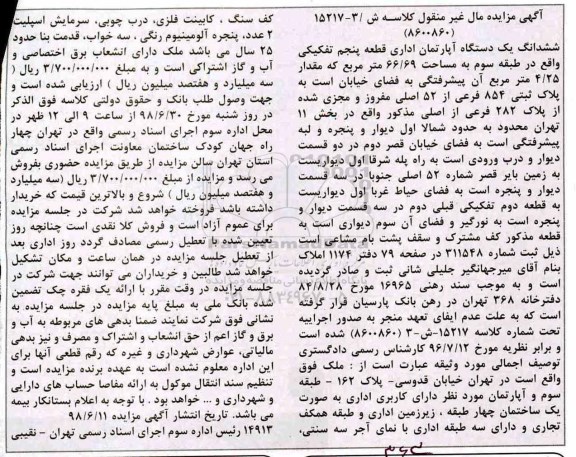 آگهی مزایده مال غیر منقول کلاسه ش /۳-۱۵۲۱۷
(۸۶۰۰۸۶۰)
ششدانگ یک دستگاه آپارتمان اداری قطعه پنجم تفکیکی
واقع در طبقه سوم به مساحت ۶۶/۶۹ متر مربع که مقدار
۴/۲۵ متر مربع آن پیشرفتگی به فضای خیابان است به
پلاک ثبتی ۸۵۴ فرعی از ۵۲ اصلی مفروز و مجزی شده
از پلاک ۲۸۲ فرعی از اصلی مذکور واقع در بخش ۱۱
تهران محدود به حدود شمالا اول دیوار و پنجره و لبه
پیشرفتگی است به فضای خیابان قصر دوم در دو قسمت
دیوار و درب ورودی است به راه پله شرقا اول دیواریست
به زمین بایر قصر شماره ۵۲ اصلی جنوبا در دو قسمت
دیوار و پنجره است به فضای حیاط غربا اول دیواریست
به قطعه دوم تفکیکی قبلی دوم در سه قسمت دیوار و
پنجره است به نورگیر و فضای آن سوم دیواری است به
قطعه مذکور کف مشترک و سقف پشت بام مشاعی است
ذیل ثبت شماره ۳۱۱۵۴۸ در صفحه ۷۹ دفتر ۱۱۷۴ املاک
بنام آقای میرجهانگیر جلیلی شانی ثبت و صادر گردیده
است و به موجب سند رهنی ۱۶۹۶۵ مورخ ۸۴/۸/۲۸
دفترخانه ۳۶۸ تهران در رهن بانک پارسیان قرار گرفته
است که به علت عدم ایفای تعهد منجر به صدور اجراییه
تحت شماره کلاسه ۱۵۲۱۷-ش-۳ (۸۶۰۰۸۶۰) شده است
و برابر نظریه مورخ ۹۶/۷/۱۲ کارشناس رسمی دادگستری
توصیف اجمالی مورد وثیقه عبارت است از : ملک فوق
واقع است در تهران خیابان قدوسی- پلاک ۱۶۲ - طبقه
سوم و آپارتمان مورد نظر دارای کاربری اداری به صورت
یک ساختمان چهار طبقه ، زیرزمین اداری و طبقه همکف
تجاری و دارای سه طبقه اداری با نمای آجر سه سنتی،
کف سنگ ، کابینت فلزی، درب چوبی، سرمایش اسپلیت
۲ عدد، پنجره آلومینیوم رنگی ، سه خواب، قدمت بنا حدود
۲۵ سال می باشد ملک دارای انشعاب برق اختصاصی و
آب و گاز اشتراکی است و به مبلغ ۳/۷۰۰/۰۰۰/۰۰۰ ریال (
سه میلیارد و هفتصد میلیون ریال ) ارزیابی شده است و
جهت وصول طلب بانک و حقوق دولتی کلاسه فوق الذکر
در روز شنبه مورخ ۹۸/۶/۳۰ از ساعت ۹ الی ۱۲ ظهر در
محل اداره سوم اجرای اسناد رسمی واقع در تهران چهار
راه جهان کودک ساختمان معاونت اجرای اسناد رسمی
استان تهران سالن مزایده از طریق مزایده حضوری بفروش
می رسد و مزایده از مبلغ ۳/۷۰۰/۰۰۰/۰۰۰ ریال (سه میلیارد
و هفتصد میلیون ریال ) شروع و بالاترین قیمت که خریدار
داشته باشد فروخته خواهد شد شرکت در جلسه مزایده
برای عموم آزاد است و فروش کلا نقدی است چنانچه روز
تعیین شده با تعطیل رسمی مصادف گردد روز اداری بعد
از تعطیل جلسه مزایده در همان ساعت و مکان تشکیل
خواهد شد طالبین و خریداران می توانند جهت شرکت در
جلسه مزایده در وقت مقرر با ارائه یک فقره چک تضمین
شده بانک ملی به مبلغ پایه مزایده در جلسه مزایده به
نشانی فوق شرکت نمایند ضمنا بدهی های مربوطه به آب و
برق و گاز اعم از حق انشعاب و اشتراک و مصرف و نیز بدهی
مالیاتی، عوارض شهرداری و غیره که رقم قطعی آنها برای
این اداره معلوم نشده است به عهده برنده مزایده است و
تنظیم سند انتقال موکول به ارائه مفاصا حساب های دارایی
و شهرداری و ... خواهد بود . با توجه به اعلام بستانکار بیمه
می باشد. تاریخ انتشار آگهی مزایده ۹۸/۶/۱۱
۱۴۹۱۳ رئیس اداره سوم اجرای اسناد رسمی تهران - نقیبی